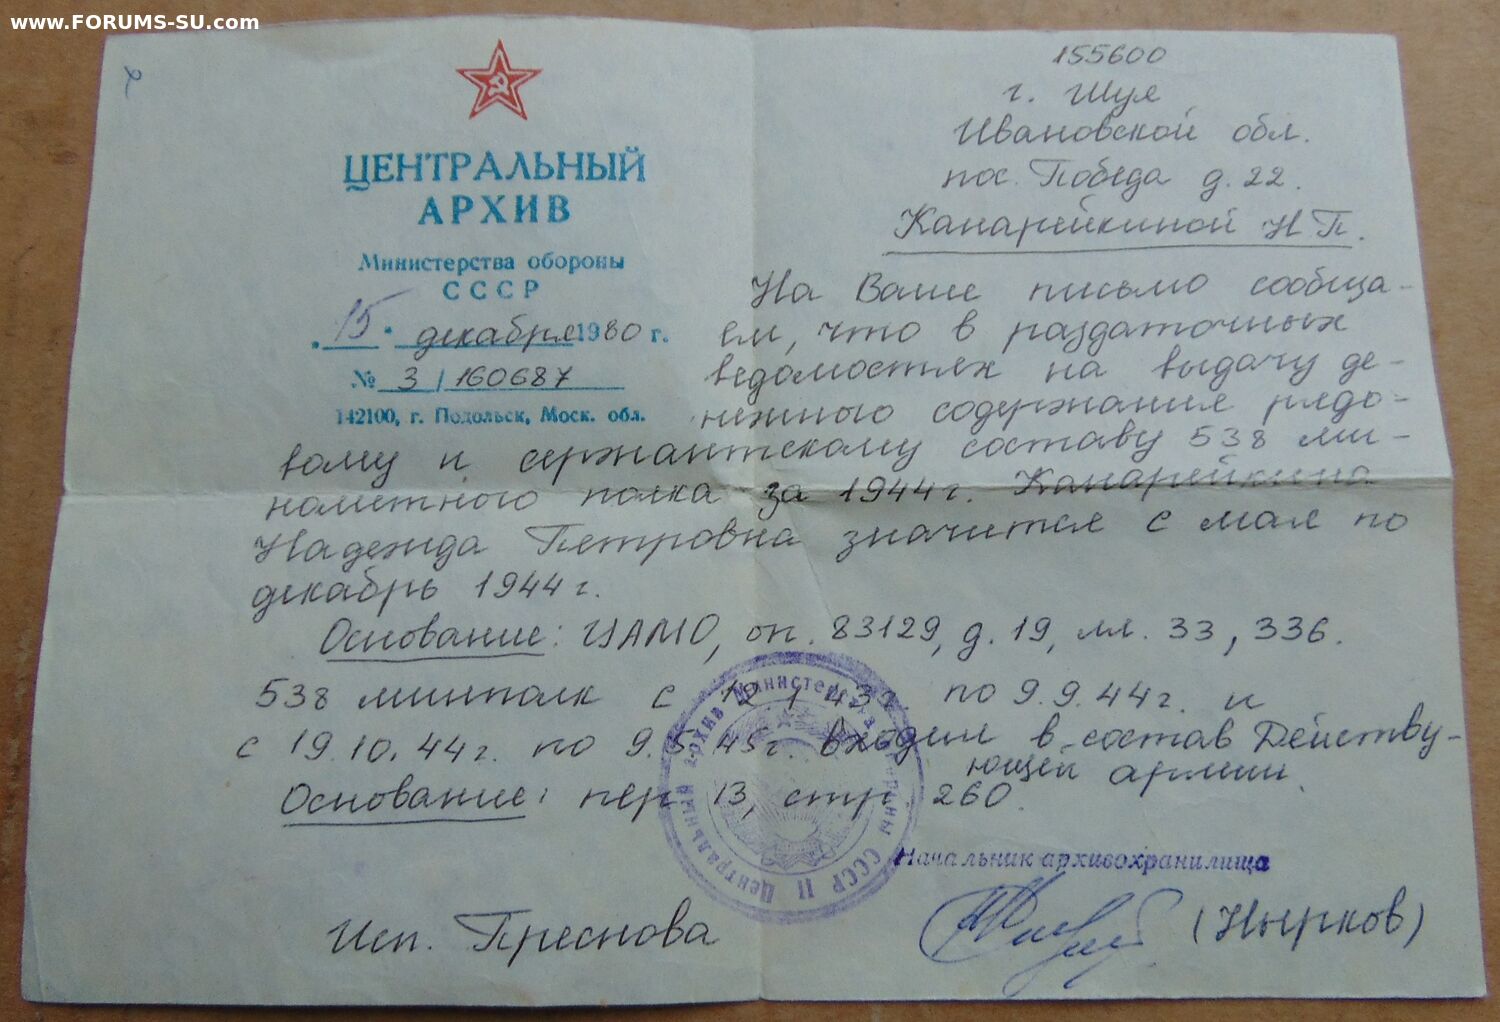 www.FORUMS-SU.com
ЦЕНТРАЛЬНЫЙ
АРХИВ
Министерства обороны
СССР
„15“ декабря 1980 г.
№ 3/160687
142100, г. Подольск, Моск. обл.
155600
г. Шуя
Ивановской обл.
пос. Победа д. 22.
Канарейкиной Н П.
На Ваше письмо сообща-
ем, что в раздаточных
ведомостях на выдачу де-
нежного содержания рядо-
вому и сержантскому составу 538 ми-
нометного полка за 1944г. Канарейкина
Надежда Петровна значится с мая по
декабрь 1944 г.
Основание: ЦАМО, оп. 83129, д. 19, лл. 33, 336.
538 минполк с по 9.9.44 г. и
с 19.10.44 г. по 9.5.45г. входил в состав Действу-
ющей армии.
Основание: пер 13, стр 260.
Центральный архив Министерства обороны СССР II
Начальник архивохранилища
(Нырков)
Исп. Преснова